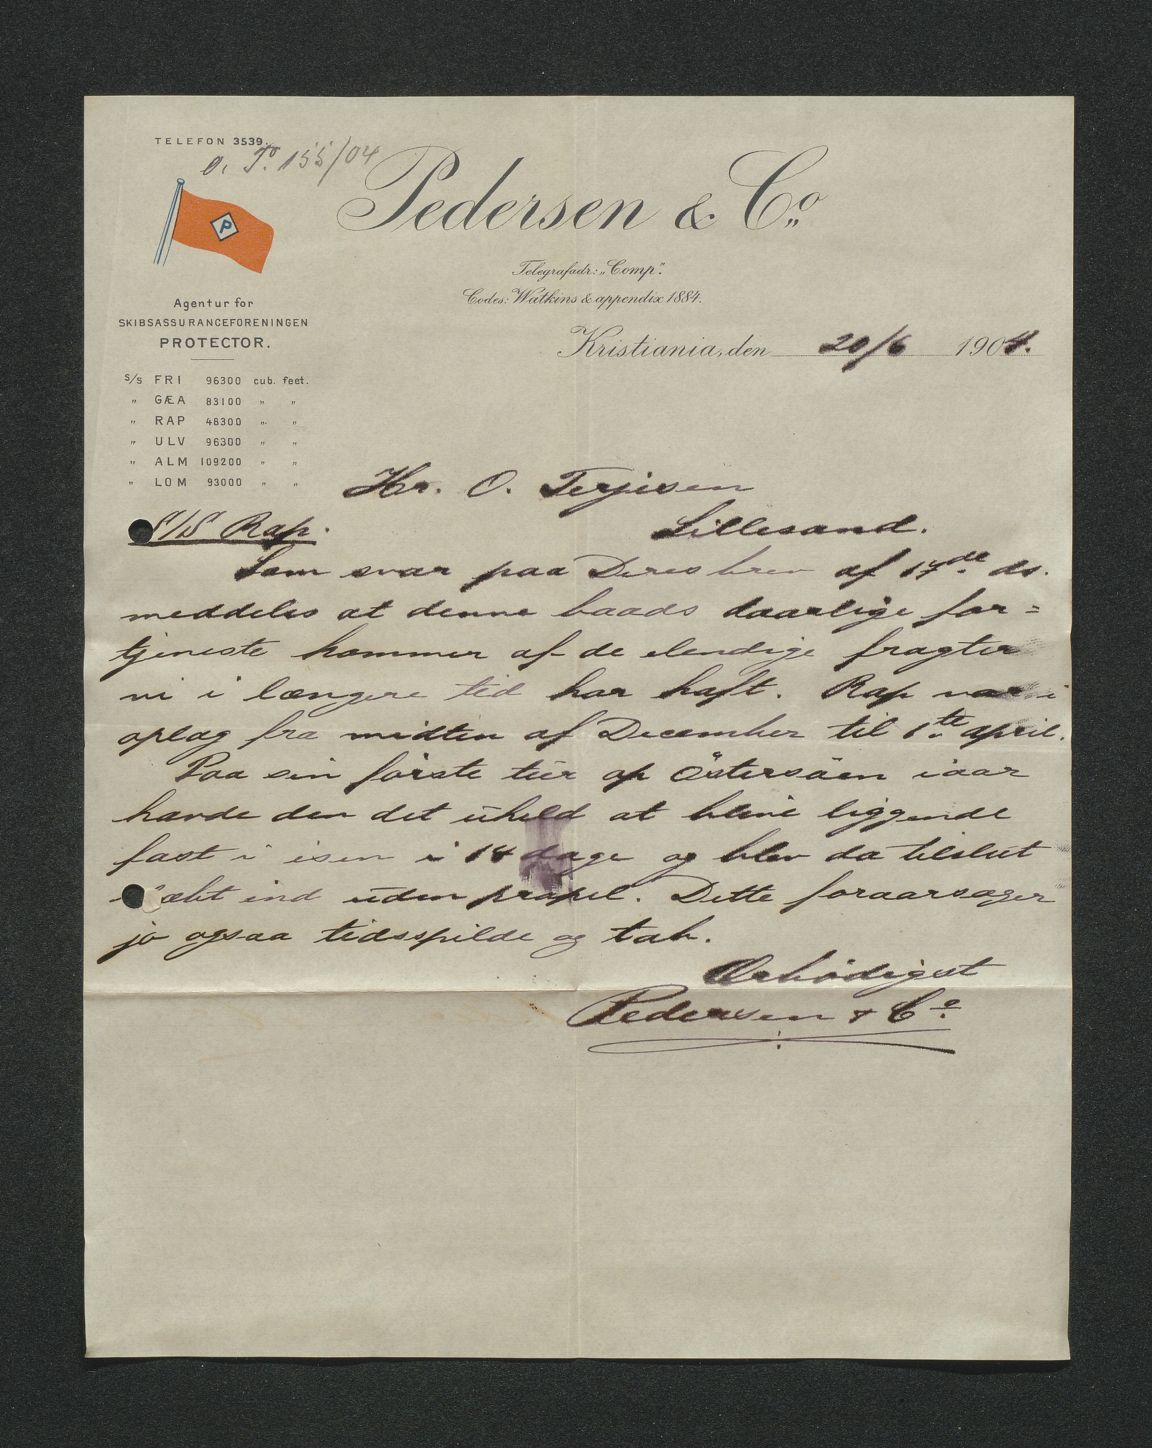 TELEFON 3539.
O. T. 155/04
P
Pedersen & Co.
Telegrafadr.: „Comp".
Codes: Watkins & appendix 1884.
Agentur for
SKIBSASSURANCEFORENINGEN
PROTECTOR.
Kristiania, den 20/6 1904.
S/S FRI 96300 cub. feet.
„ GÆA 83100 „ „
„ RAP 48300 „ „
„ ULV 96300 „ „
„ ALM 109200 „ „
„ LOM 93000 „ „
Hr. O. Terjesen
S/S Rap. Lillesand.
Som svar paa Deres brev af 17de ds.
meddeles at denne baads daarlige for=
tjeneste kommer af de elendige fragter
vi i længere tid har haft. Rap var i
oplag fra midten af December til 1ste april.
Paa sin første tur op Östersöen iaar
havde den det uheld at blive liggende
fast i isen i 14 dage og blev da tilslut
ind uden propel. Dette foraarsager
jo ogsaa tidsspilde og tab.
Ærbödigst
Pedersen & Co.